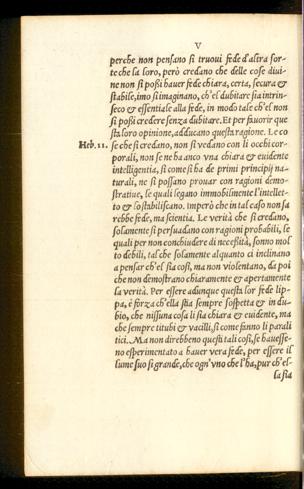 V
perche non pensano si truoui fede d'altra sor-
te che la loro, però credano che delle cose diui-
ne non si possi hauer fede chiara, certa, secura &
stabile, imo si imaginano, ch'el dubitare sia intrin-
seco & essentiale alla fede, in modo tale ch'el non
si possi credere senza dubitare. Et per fauorir que
sta loro opinione, adducano questa ragione. Le co
Heb. 11. se che si credano, non si vedano con li occhi cor-
porali, non se ne ha anco vna chiara & euidente
intelligentia, si come si ha de primi principij na-
turali, ne si possano prouar con ragioni demo-
stratiue, le quali legano immobilmente l'intellet-
to & lo stabiliscano. Imperò che in tal caso non sa
rebbe fede, ma scientia. Le verità che si credano,
solamente si persuadano con ragioni probabili, le
quali per non conchiudere di necessità, sonno mol
to debili, tal che solamente alquanto ci inclinano
a pensar ch'el sia così, ma non violentano, da poi
che non demostrano chiaramente & apertamente
la verità. Per essere adunque questa lor fede lip-
pa, è forza ch'ella stia sempre sospetta & in du-
bio, che nissuna cosa li sia chiara & euidente, ma
che sempre titubi & vacilli, si come fanno li parali
tici. Ma non direbbeno questi tali così, se hauesse-
no esperimentato a hauer vera fede, per essere il
lume suo si grande, che ogn'vno che l'ha, pur ch'el-
la sia